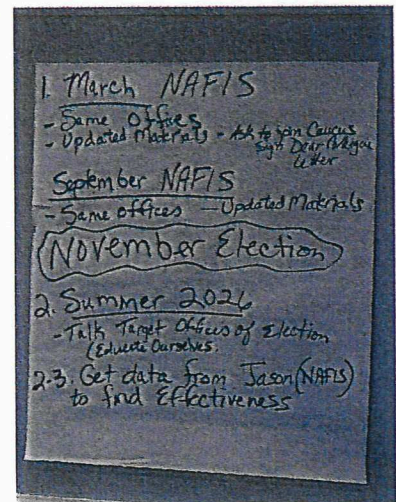 1. March NAFIS
- Same Offies
- Updated Matrials - Ask to join Caucus
Sign Dear Colleague
Letter
September NAFIS
- Same offices - Updated Matrials
November Election
2. Summer 2026
- Talk Target Offices of Election
(Educate Ourselves.
2-3. Get data from Jason (NAFIS)
to find Effectiveness